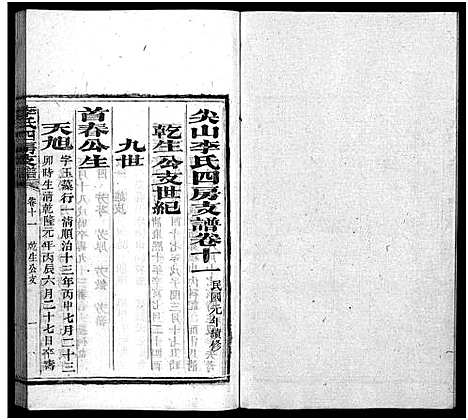 尖山李氏四房支譜卷十一 民國元年續修
乾生公支世紀
九世
首春公生
天旭 字玉墓行一清順治十三年丙申七月二十三
卯時生清乾隆元年丙辰六月二十七日卒壽
李氏四房支譜 卷十一 乾生公支 一